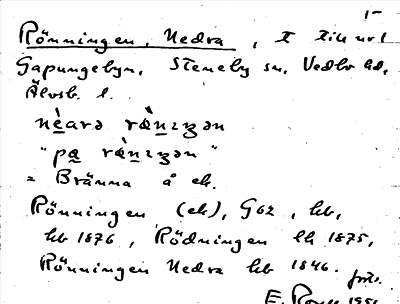 Rönningen, Nedra, t till nr 1
Gapungebyn, Steneby sn. Vedbo hd,
Älvsb. l.
nèarə rænɪŋən
"pa rænɪŋən"
= Bränna å ek.
Rönningen (ek), G62, hb,
hb 1876, Rödningen lh 1875,
Rönningen Nedra hb 1846.
E. 1951